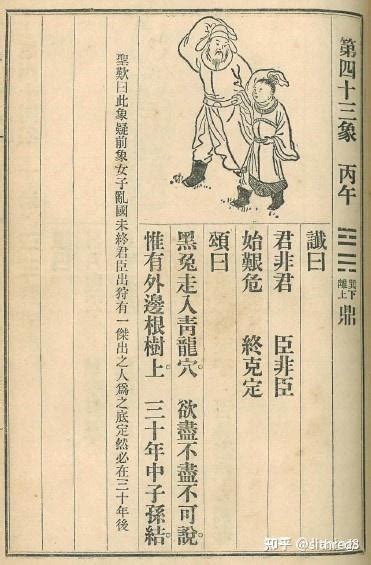 第四十三象 丙午 ䷱ 巽下離上 鼎
讖曰
君非君 臣非臣
始艱危 終克定
頌曰
黑兔走入青龍穴。 欲盡不盡不可說。
惟有外邊根樹上 三十年中子孫結。
聖歎曰此象疑前象女子亂國未終君臣出狩有一傑出之人為之底定然必在三十年後
知乎